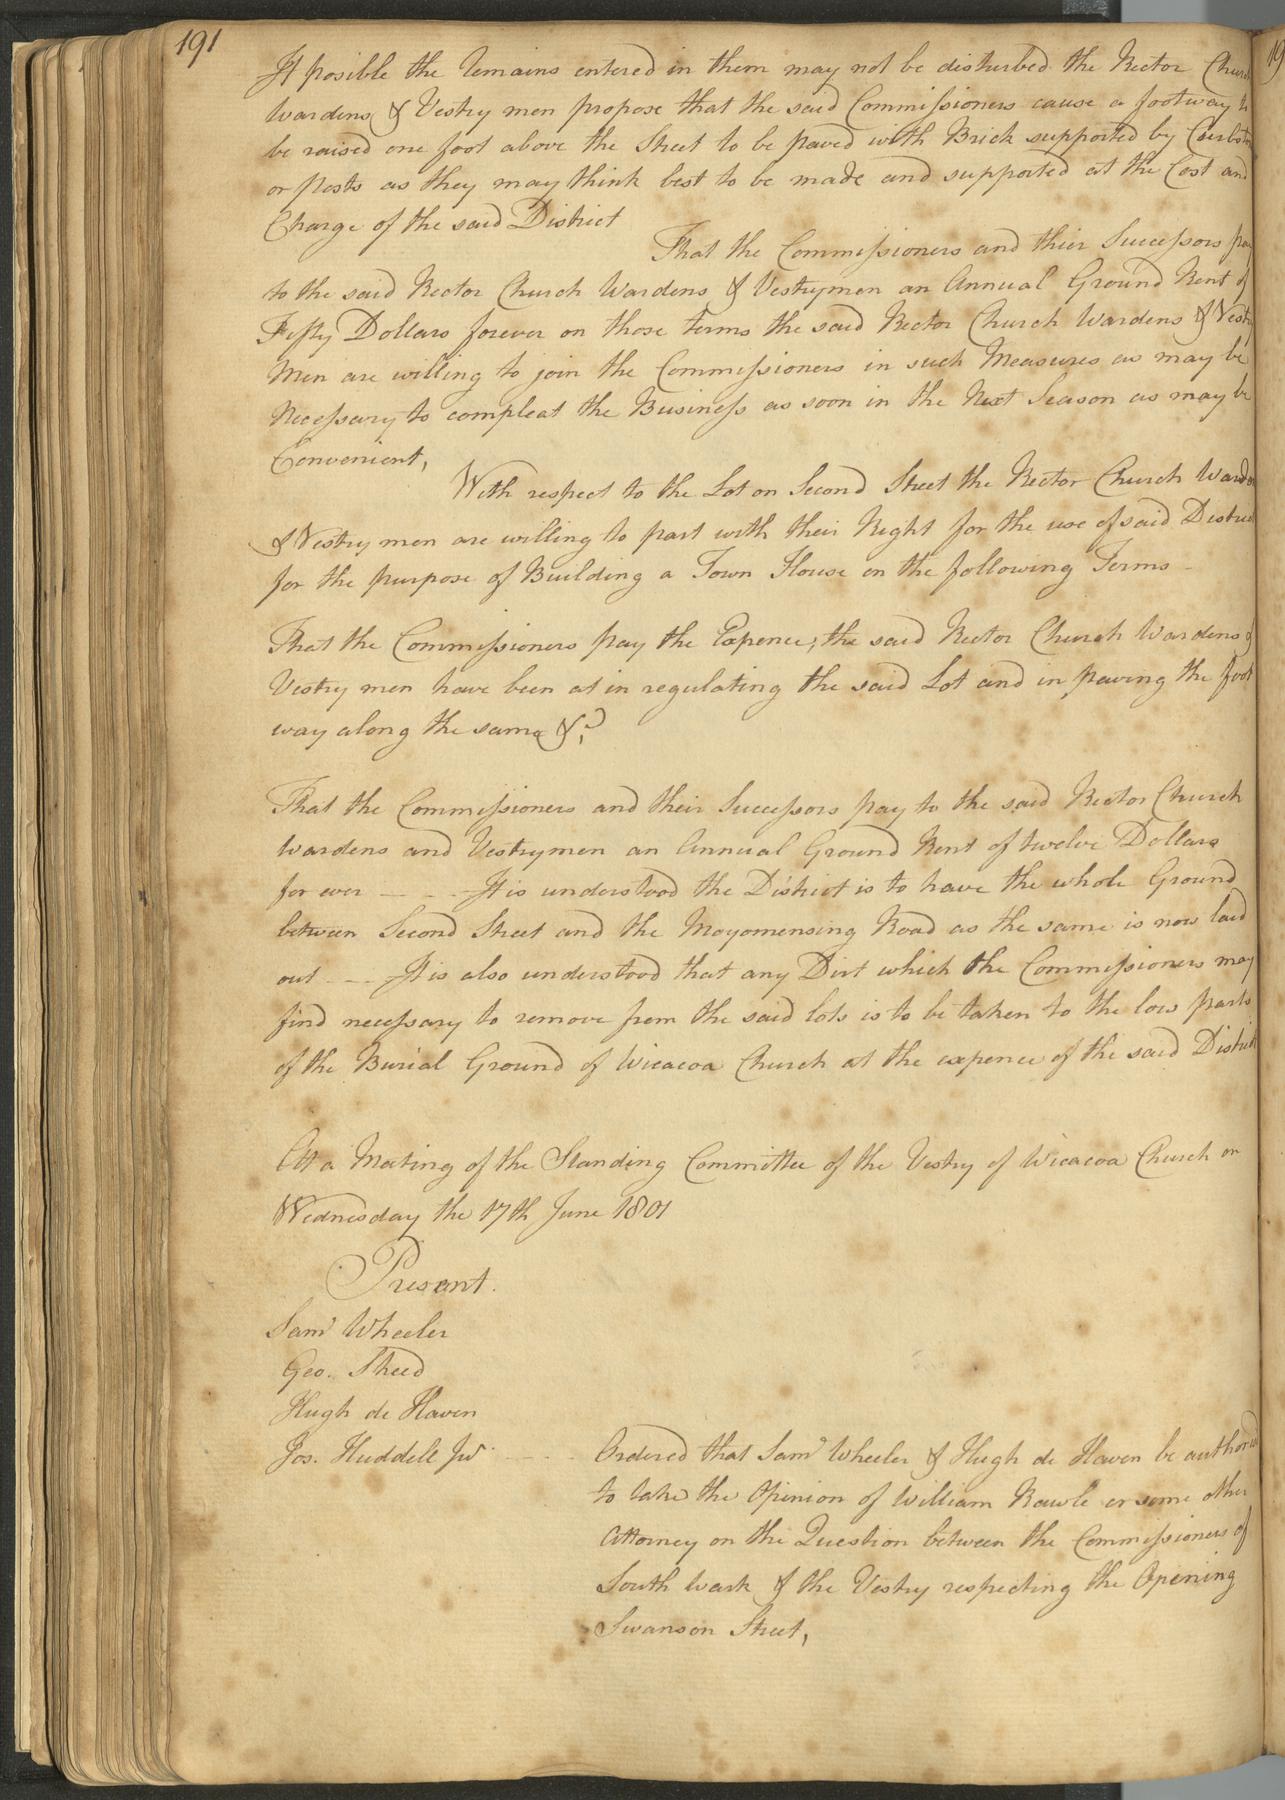 191
If posible the Remains entered in them may not be disturbed the Rector Church
Wardens & Vestry men propose that the said Commissioners cause a footway to
be raised one foot above the Street to be paved with Brick supported by Curbston
or Posts as they may think best to be made and supported at the Cost and
Charge of the said District
That the Commissioners and thier Successors pay
to the said Rector Church Wardens & Vestrymen an Annual Ground Rent of
Fifty Dollars forever on those terms the said Rector Church Wardens & Vestry
Men are willing to join the Commissioners in such Measures as may be
Necessary to compleat the Business as soon in the Next Season as may be
Convenient,
With respect to the Lot on Second Street the Rector Church Warden
& Vestry men are willing to part with their Right for the use of said District
for the purpose of Building a Town House on the following Terms -
That the Commissioners pay the Expence, the said Rector Church Wardens &
Vestry men have been at in regulating the said Lot and in paving the foot
way along the same &c
That the Commissioners and their Successors pay to the said Rector Church
Wardens and Vestrymen an Annual Ground Rent of twelve Dollars
for ever - - - It is understood the District is to have the whole Ground
between Second Street and the Moyomensing Road as the same is now laid
out - - - It is also understood that any Dirt which the Commissioners may
find necessary to remove from the said lots is to be taken to the low parts
of the Burial Ground of Wicacoa Church at the expence of the said District
At a Meeting of the Standing Committee of the Vestry of Wicacoa Church on
Wednesday the 17th June 1801
Present.
Saml Wheeler
Geo. Sheed
Hugh de Haven
Jos. Huddell Jur - - - Ordered that Saml Wheeler & Hugh de Haven be authored
to take the Opinion of William Rawle or some other
Attorney on the Question between the Commissioners of
South wark & the Vestry respecting the Opening
Swanson Street,